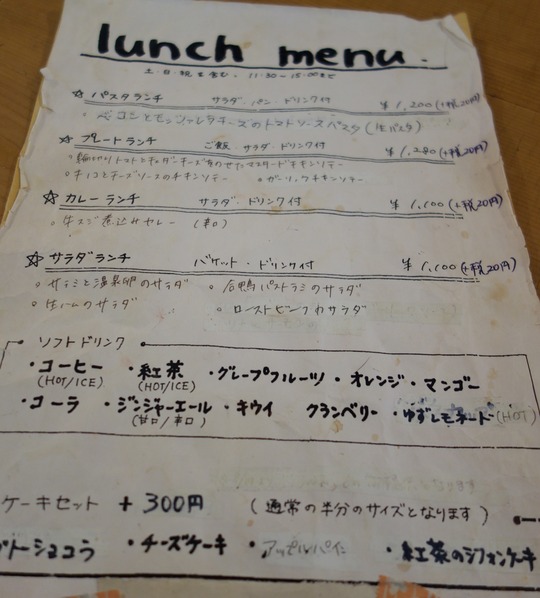 lunch menu.
土・日・祝も含む、 11:30〜15:00まで
☆ パスタランチ サラダ・パン・ドリンク付 ¥1,200(+税120円)
◦ ベーコンとモッツァレラチーズのトマトソースパスタ(生パスタ)
☆ プレートランチ ご飯・サラダ・ドリンク付 ¥1,280(+税120円)
◦ 輪切りトマトとチェダーチーズをのせたマスタードチキンソテー
◦ キノコとチーズソースのチキンソテー ◦ ガーリックチキンソテー
☆ カレーランチ サラダ・ドリンク付 ¥1,100(+税120円)
◦ 牛スジ煮込みカレー (辛口)
☆ サラダランチ バケット・ドリンク付 ¥1,100(+税120円)
◦ サラミと温泉卵のサラダ ◦ 合鴨パストラミのサラダ
◦ 生ハムのサラダ ◦ ローストビーフのサラダ
ソフトドリンク
・コーヒー ・紅茶 ・グレープフルーツ ・オレンジ・マンゴー
(HOT/ICE) (HOT/ICE)
・コーラ ・ジンジャーエール ・キウイ クランベリー ・ゆずレモネード(HOT)
(甘口/辛口)
ケーキセット +300円 (通常の半分のサイズとなります)
ガトーショコラ ・チーズケーキ ・アップルパイ ・紅茶のシフォンケーキ